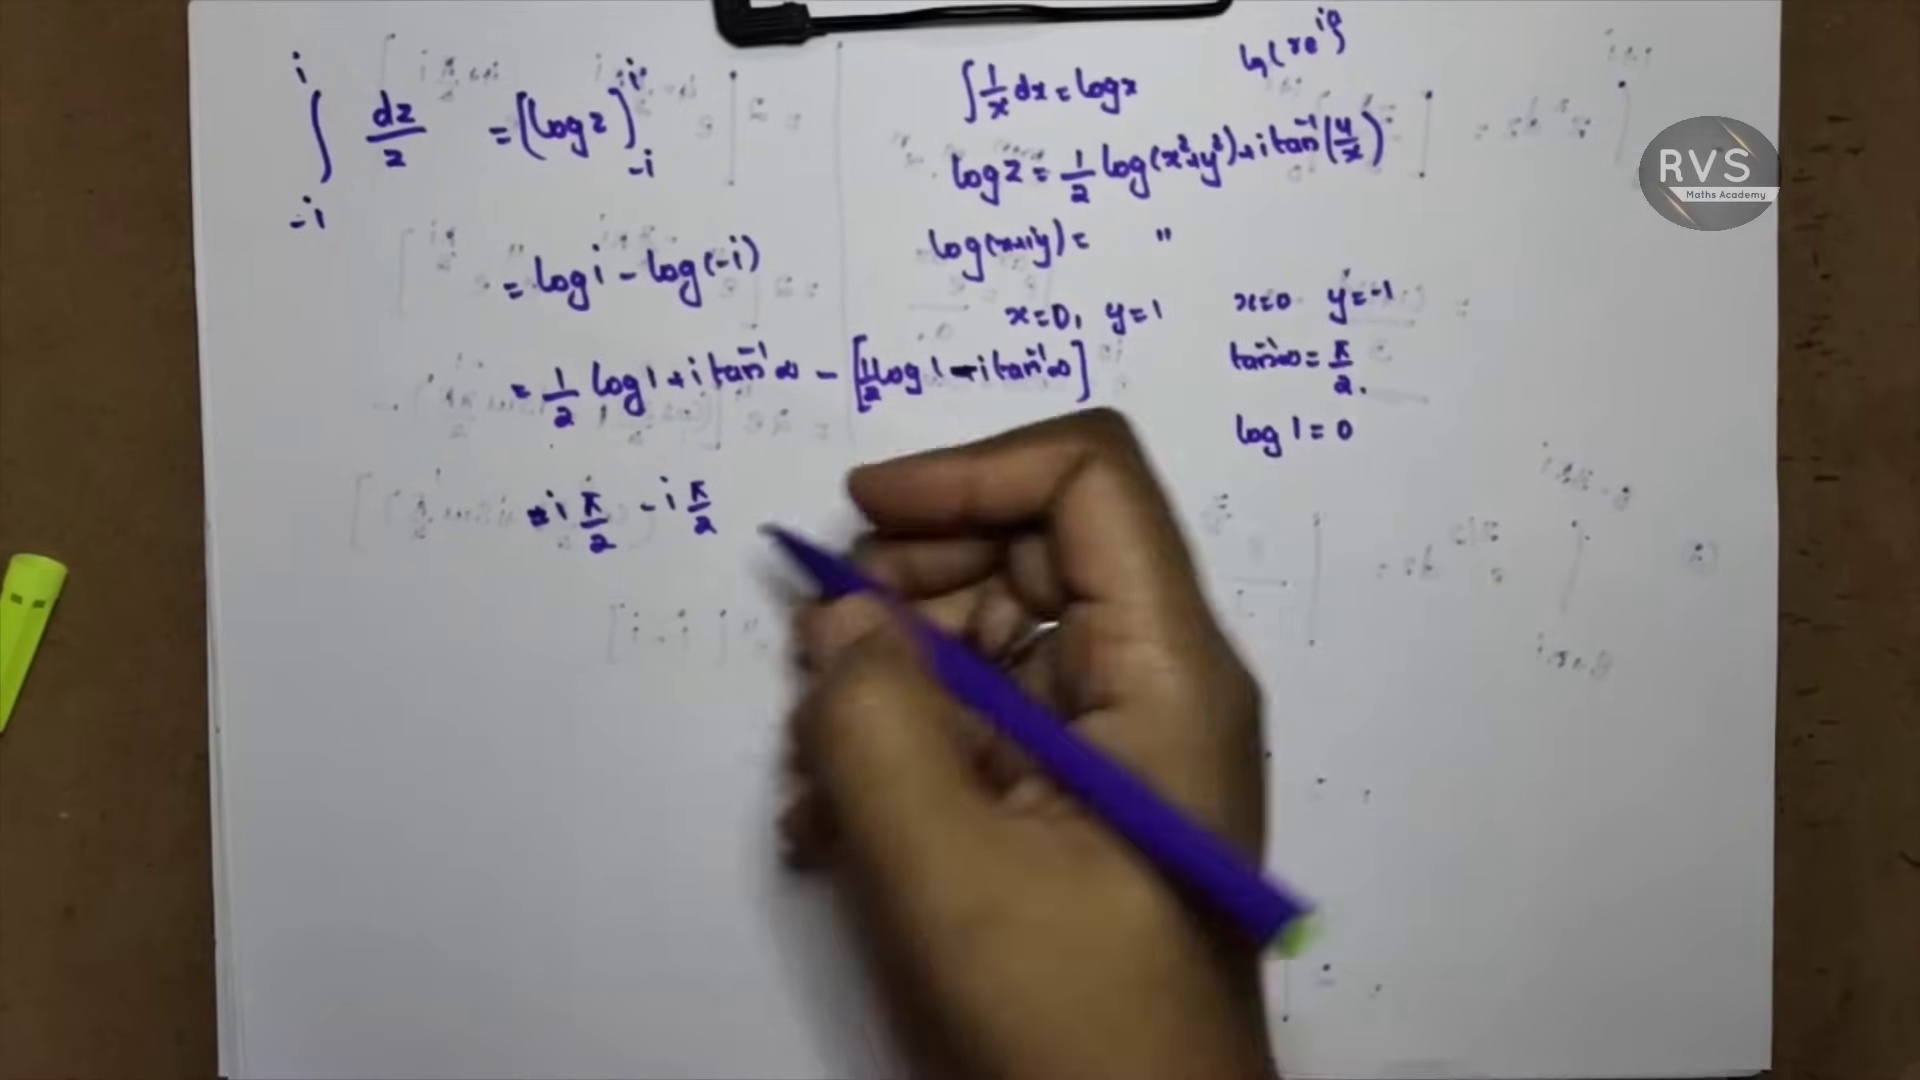 i
∫ dz/z = [log z] i
-i -i
= log i - log(-i)
= 1/2 log 1 + i tan⁻¹ ∞ - [1/2 log 1 - i tan⁻¹ ∞]
= i π/2 - i π/2
∫ 1/x dx = log x
log(re^iθ)
log z = 1/2 log(x²+y²) + i tan⁻¹(y/x)
log(x+iy) = "
x=0, y=1
x=0 y=-1
tan⁻¹∞ = π/2.
log 1 = 0
RVS
Maths Academy